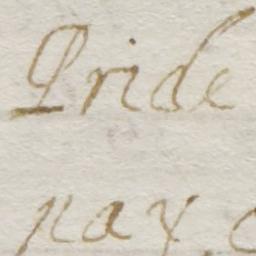 Pride
nay